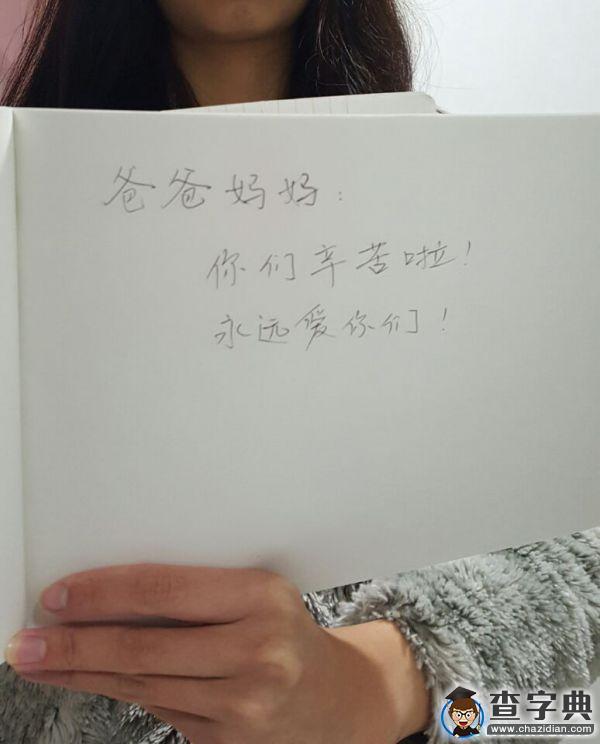 爸爸妈妈:
你们辛苦啦!
永远爱你们!
查字典
www.chazidian.com